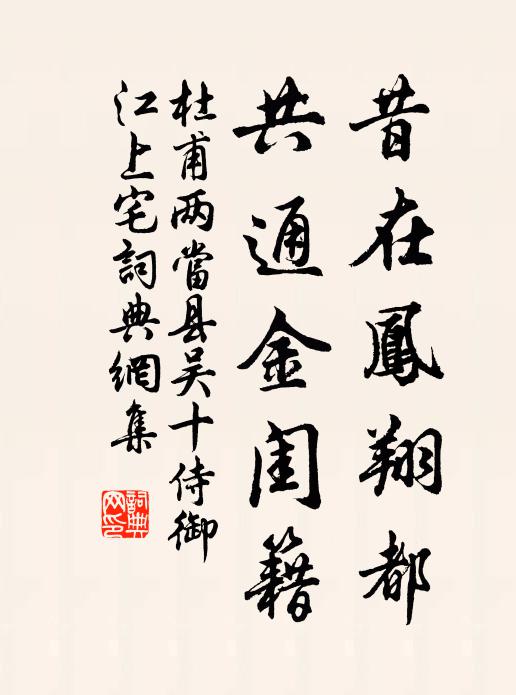 昔在鳳翔都
共通金闺籍
杜甫两當县吴十侍御
江上宅詞典網集
詞典
网印